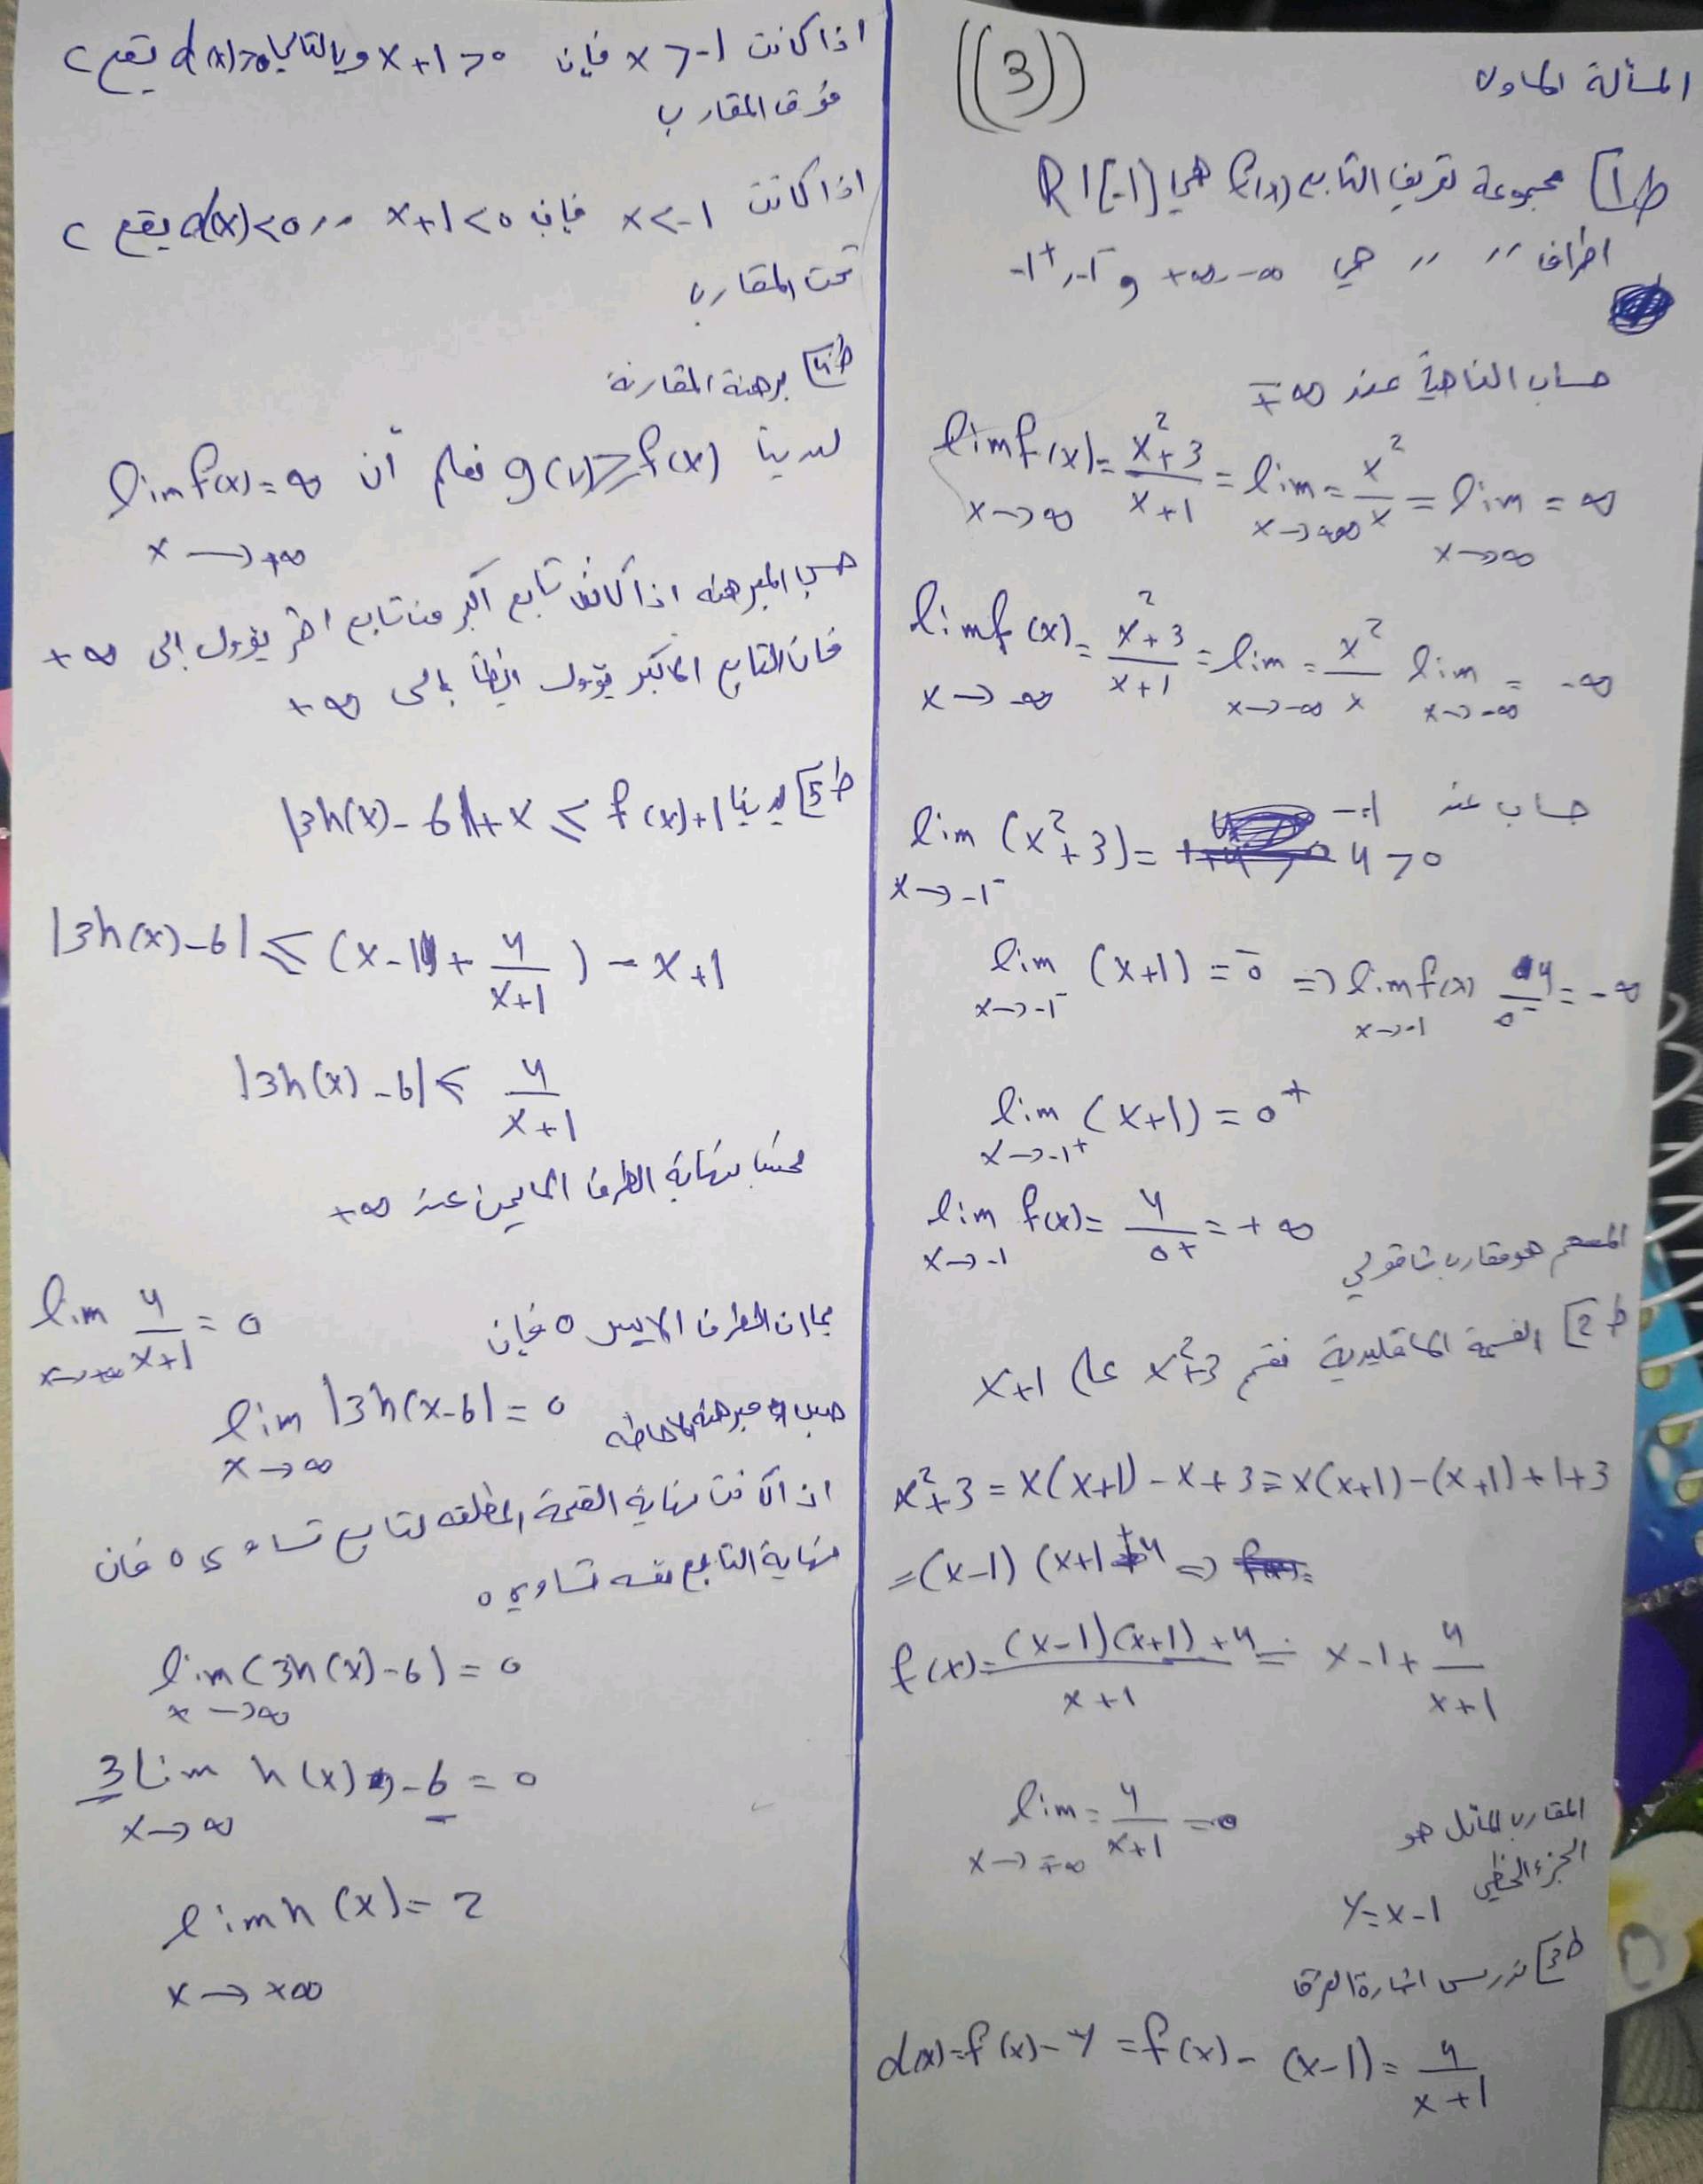 ((3))
المسألة الاولى
ط1] مجموعة تعريف التابع f(x) هي R\[-1]
اطراف ,, ,, هي -∞ ,+∞ و -1⁻ , -1⁺
حساب النهاية عند ±∞
lim f(x) = x²+3 / x+1 = lim = x² / x = lim = ∞
x→∞ x→+∞ x→∞
lim f(x) = x²+3 / x+1 = lim = x² / x lim = -∞
x→-∞ x→-∞ x→-∞
حساب عند -1
lim (x²+3) = 4 > 0
x→-1⁻
lim (x+1) = 0⁻ => lim f(x) 4/0⁻ = -∞
x→-1⁻ x→-1
lim (x+1) = 0⁺
x→-1⁺
lim f(x) = 4/0+ = +∞
x→-1
هو مقارب شاقولي
ط2] القسمة الاقليدية نقسم x²+3 على x+1
x²+3 = x(x+1) - x+3 = x(x+1) - (x+1)+1+3
= (x-1) (x+1 + 4 =>
f(x) = (x-1)(x+1)+4 / x+1 = x-1 + 4 / x+1
lim = 4 / x+1 = 0
x→±∞
المقارب المائل هو
الجزء الخطي
y = x-1
ط3] ندرس اشارة الفرق
d(x) = f(x) - y = f(x) - (x-1) = 4 / x+1
اذا كانت x > -1 فإن x+1 > 0 وبالتالي d(x)>0 يقع c
فوق المقارب
اذا كانت x < -1 فإن x+1 < 0 ,, d(x) < 0 يقع c
تحت المقارب
ط4] برهنة المقارنة
لدينا g(x) ≥ f(x) نعلم أن lim f(x) = ∞
x→+∞
حسب المبرهنه اذا كانت تابع اكبر من تابع اخر يؤول إلى +∞
فان التابع الاكبر يؤول ايضاً إلى +∞
ط5] لدينا |3h(x) - 6| + x ≤ f(x)+1
|3h(x)-6| ≤ (x-1 + 4 / x+1) - x+1
|3h(x) - 6| ≤ 4 / x+1
نهاية الطرف الايمن عند +∞
lim 4 / x+1 = 0
x→+∞
بما ان الطرف الايسر 0 فإن
lim |3h(x-6| = 0
x→∞
حسب مبرهنة الاحاطه
اذا كانت نهاية القيمة المطلقه لتابع تساوي 0 فان
نهاية التابع نفسه تساوي 0
lim (3h(x) - 6) = 0
x→∞
3 Lim h(x) - 6 = 0
x→∞
lim h(x) = 2
x→+∞